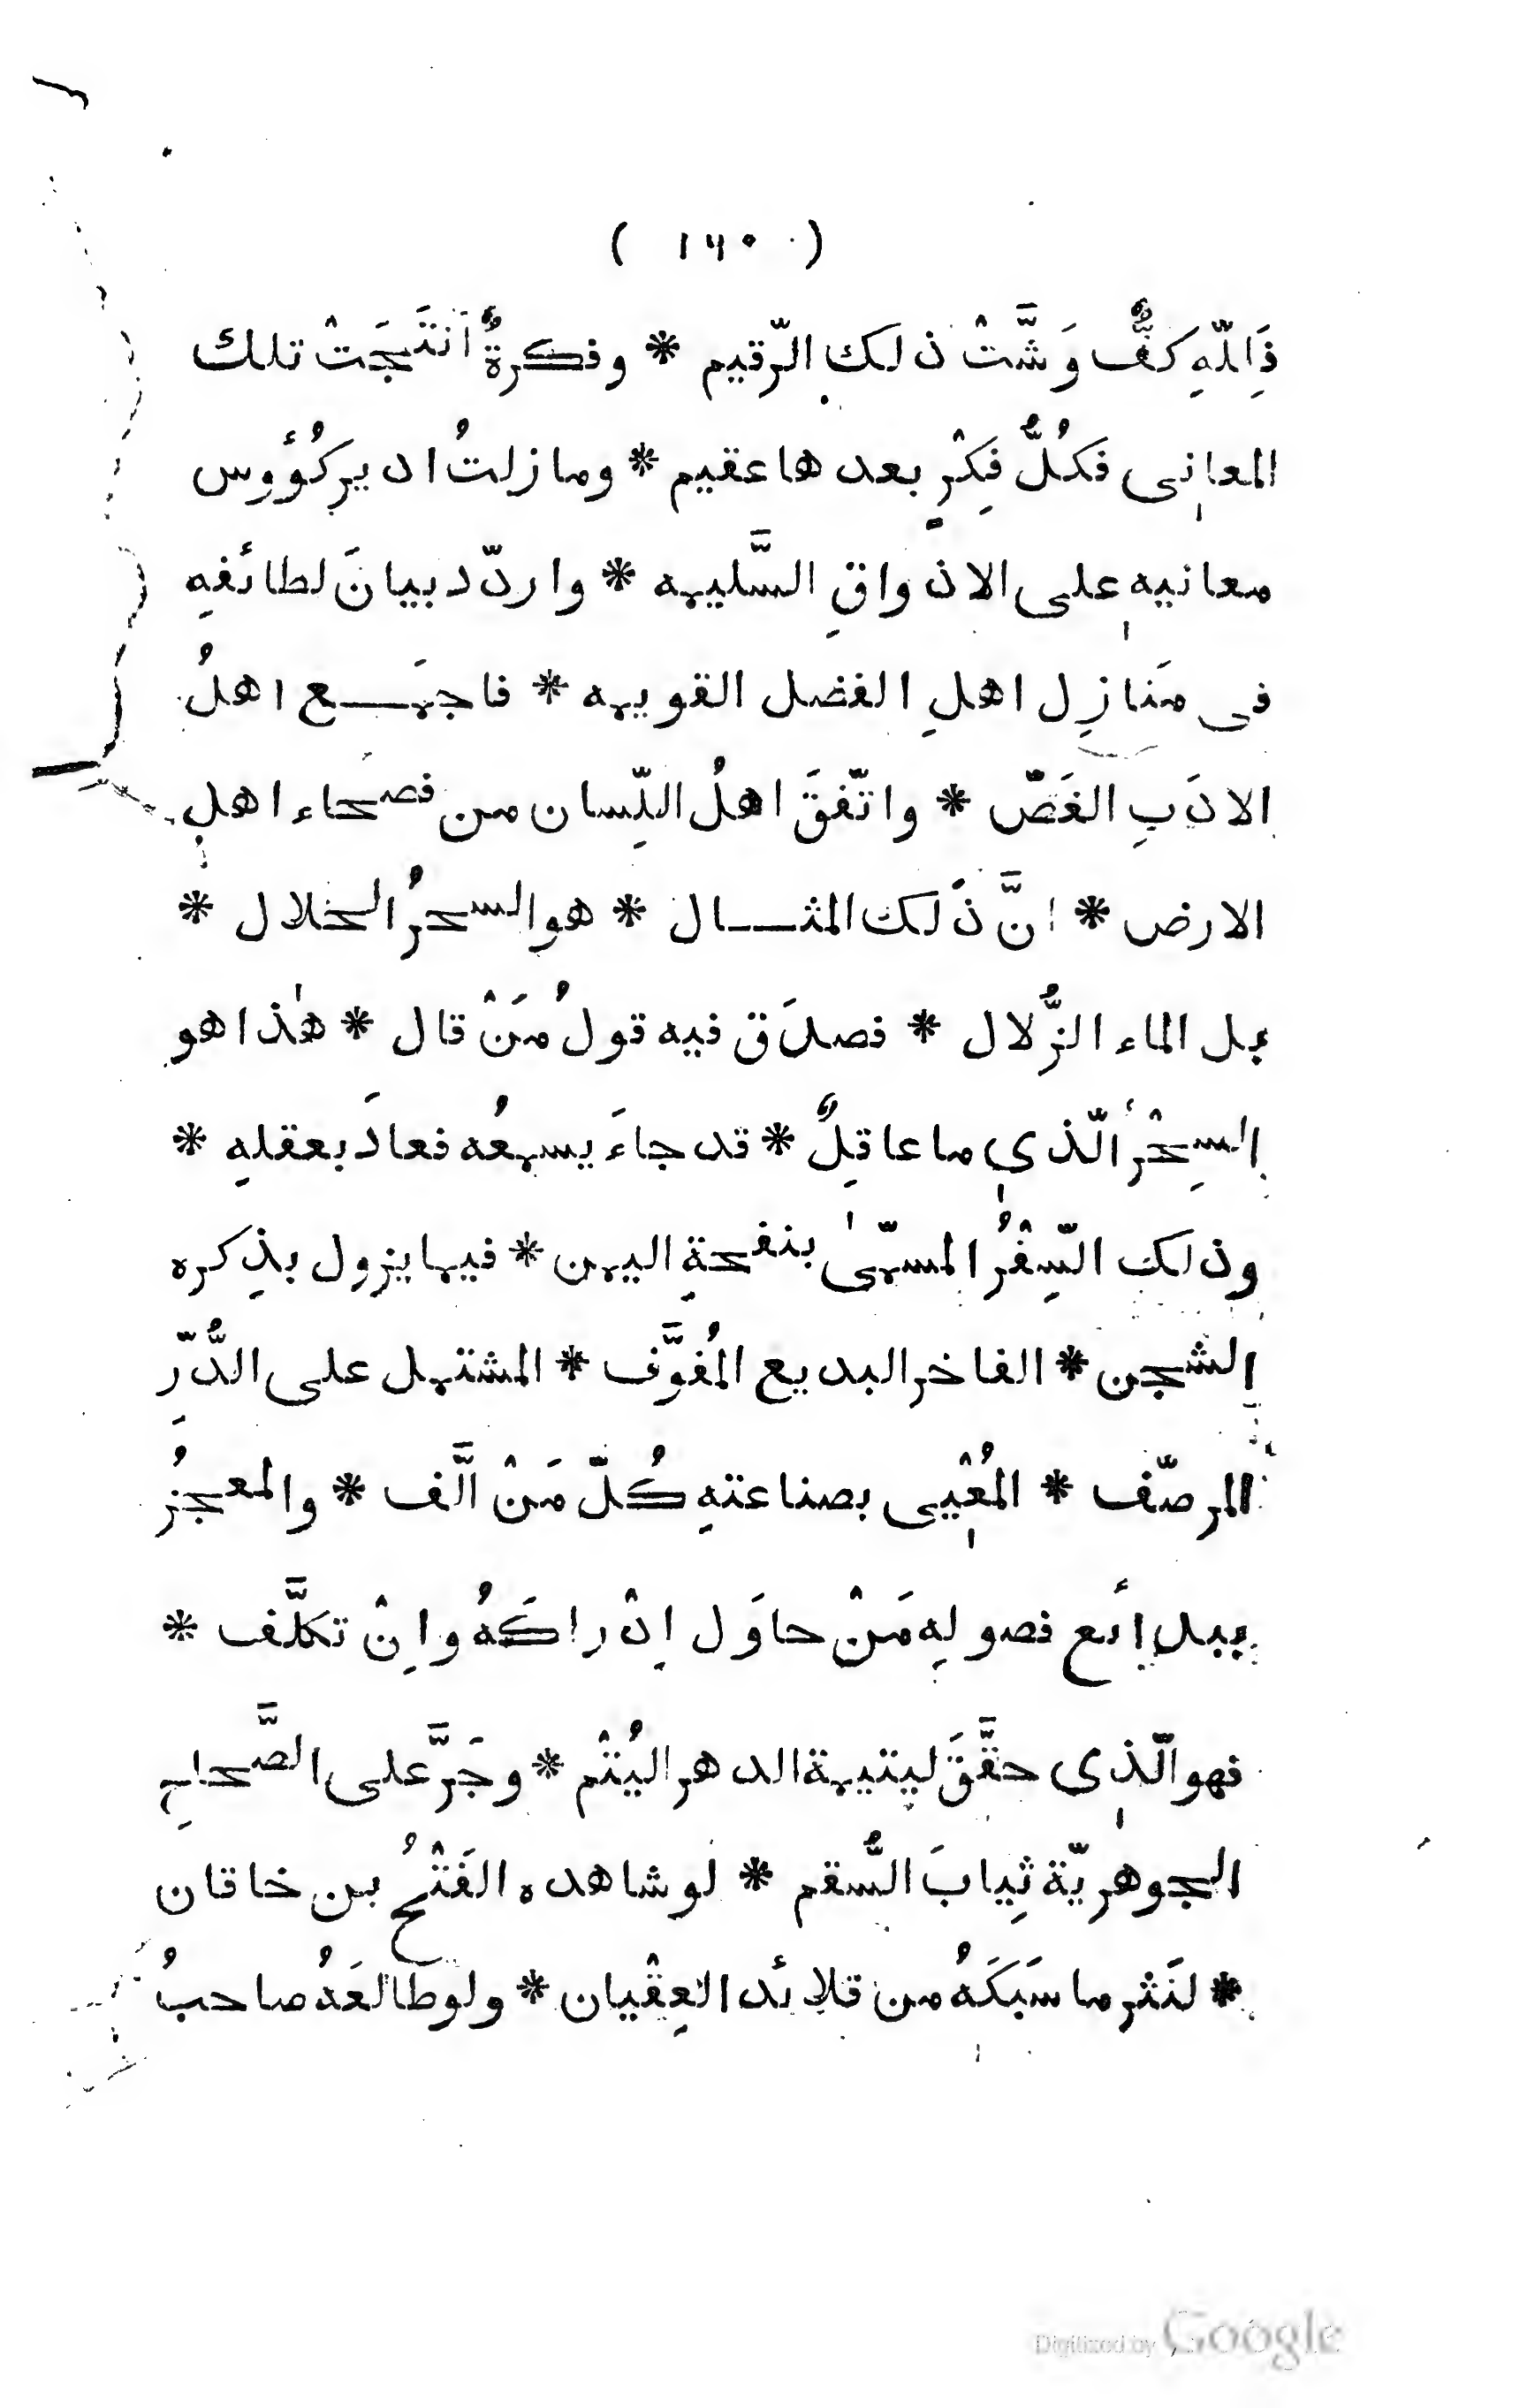 ( ١٦٠ )
فَلِلّٰهِ كفٌّ وَشَّتْ ذلك الرّقيم * وفكرةٌ اَنتَجَتْ تلك
المعانى فكُلُّ فِكْرٍ بعدها عقيم * وما زلتُ ادير كُؤُوس
معانيه على الاذواقِ السَّليمه * واردّد بيانَ لطائفهِ
فى مَنازِل اهلِ الفضل القويمه * فاجمَـع اهلُ
الادَبِ الغَضّ * واتّفقَ اهلُ اللِّسان من فصحَاء اهل
الارض * انَّ ذَلك المثـال * هو السحرُ الحلال *
بل الماء الزُّلال * فصدَق فيه قولُ مَنْ قال * هٰذا هو
السِحْرُ الّذى ما عاقِلٌ * قد جاءَ يسمعُه فعادَ بعقلهِ *
وذلك السِّفْرُ المسمّى بنفحةِ اليمن * فيما يزول بذِكره
الشجن * الفاخر البديع المُفوَّف * المشتمل على الدُّرِّ
المرصّف * المُعْيى بصناعتهِ كُلّ مَنْ الَّف * والمعجزُ
ببدائع فصولهِ مَنْ حاوَل اِدْراكَهُ واِنْ تكلَّف *
فهو الّذى حقَّقَ ليتيمة الدهر اليُتْم * وجَرَّ على الصَّحاحِ
الجوهريّة ثِيابَ السُّقم * لو شاهده الفَتْحُ بن خاقان
* لنَثر ما سَبَكَهُ من قلائد العِقْيان * ولو طالعَهُ صاحبُ
Digitized by Google